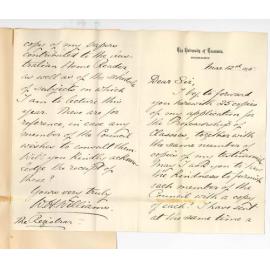 The University of Tasmania.
Dear Sir,
I beg to forward
you herewith 25 copies
of my application for
the
Classes, together with
the same number of
copies of my testimonials
May I ask you to have
the kindness to furnish
each member of the
Council with a copy
of each? I have sent
at the same time a
copy of my papers
contributed to the Aus-
tralian Home Reader
as well as of the schedule
of subjects on which
I am to lecture this
year. These are for
reference, in case any
member of the Council
wishes to consult them
Will you kindly acknow-
ledge the receipt of
these?
Yours very truly
R. H. Williams
The Registrar